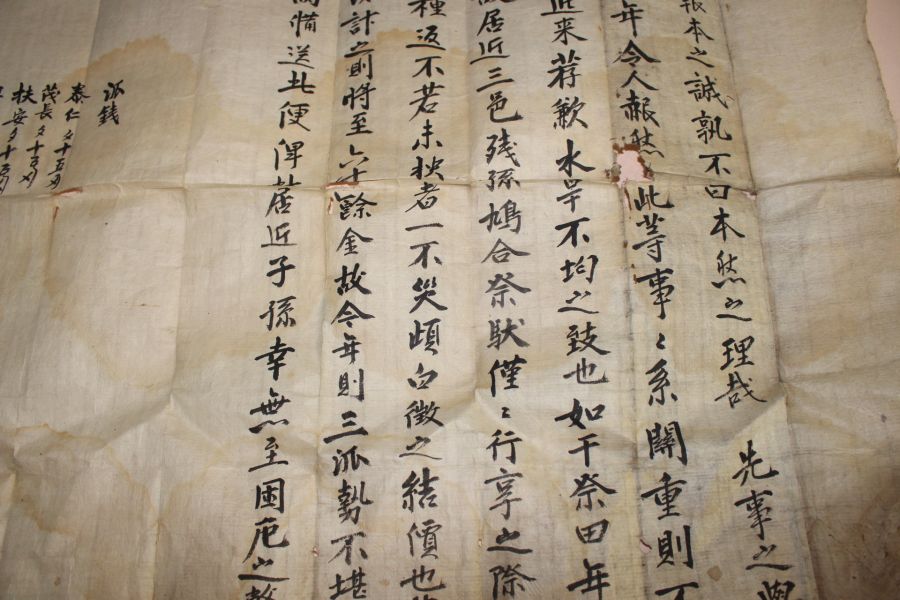 報本之誠孰不曰本然之理哉 先事之與
年令人赧然此等事〻系關重則不
近来荐歉水旱不均之致也如干祭田年
居近三邑残孫鳩合祭馱僅〻行享之際
種返不若未秧者一不災頉白徵之結價也
計之則將至六十餘金故今年則三派勢不堪
備送北便俾居近子孫幸無至困厄之
派錢
泰仁〻十五
茂長〻十五
扶安〻十